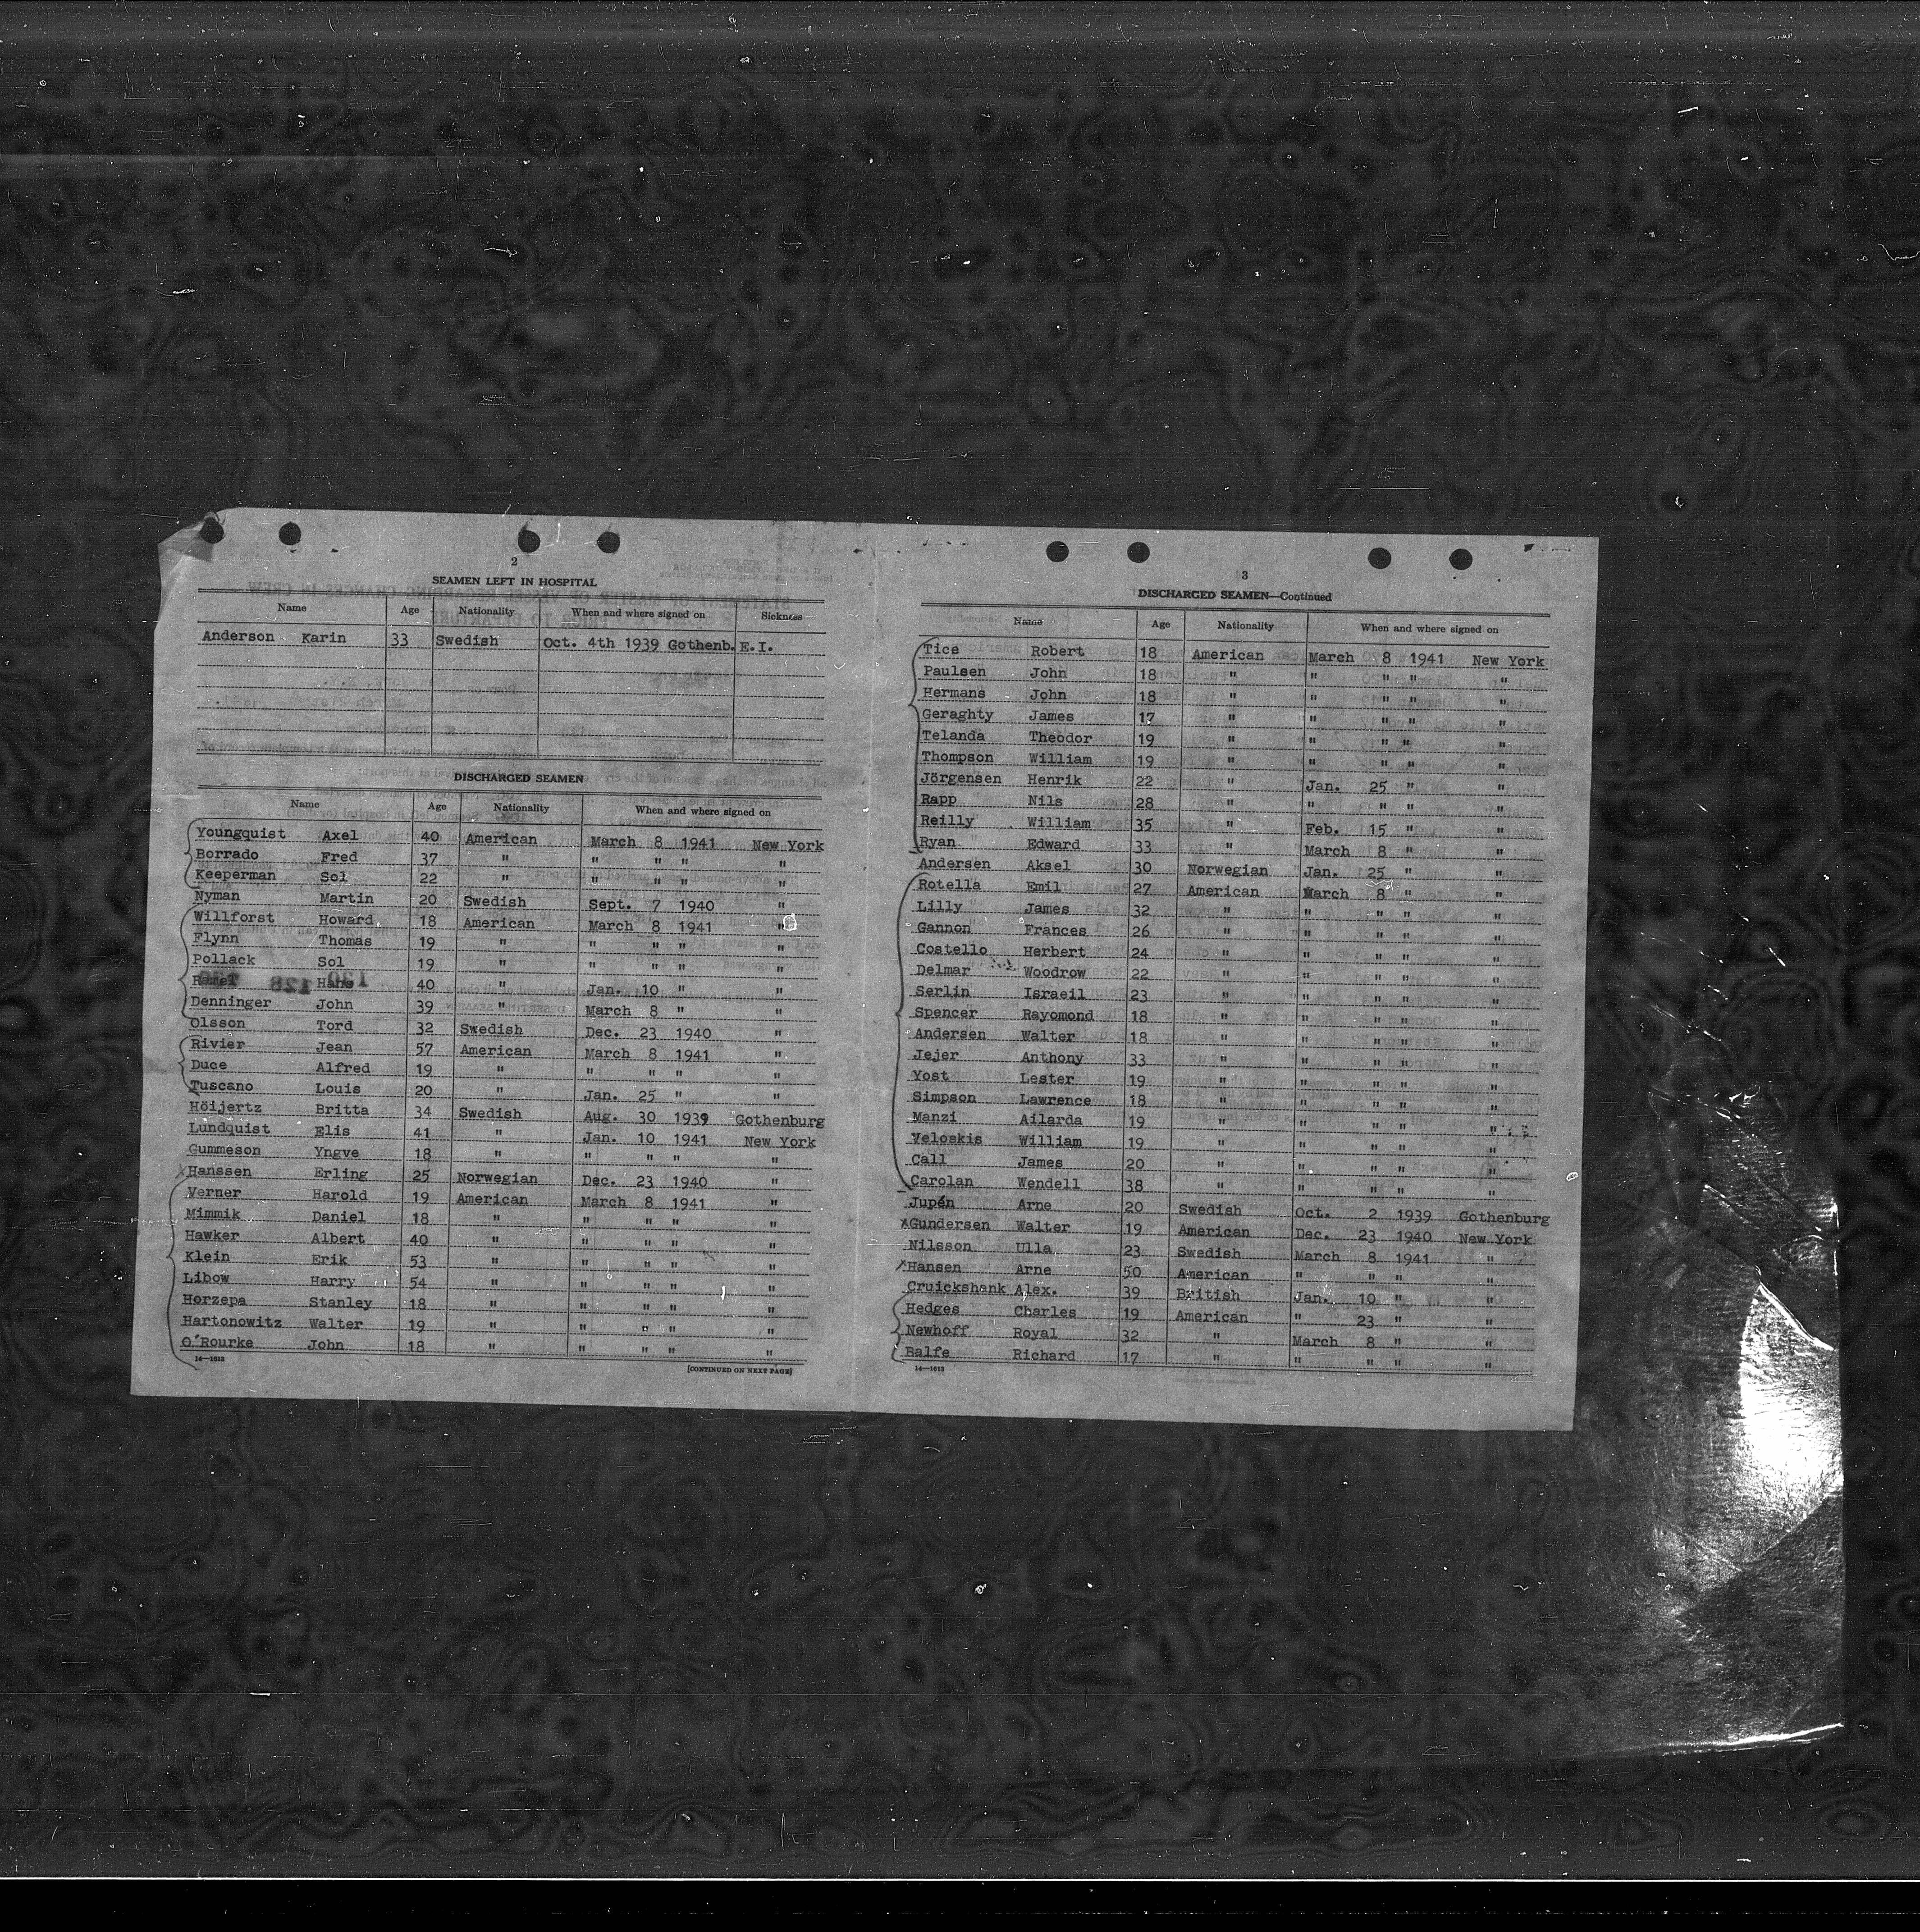 2
SEAMEN LEFT IN HOSPITAL
Name Age Nationality When and where signed on Sickness
Anderson Karin 33 Swedish Oct. 4th 1939 Gothenb. E.I.
DISCHARGED SEAMEN
Name Age Nationality When and where signed on
Youngquist Axel 40 American March 8 1941 New York
Borrado Fred 37 " " " " "
Keeperman Sol 22 " " " " "
Nyman Martin 20 Swedish Sept. 7 1940 "
Willforst Howard 18 American March 8 1941 "
Flynn Thomas 19 " " " " "
Pollack Sol 19 " " " " "
40 " Jan. 10 " "
Denninger John 39 " March 8 " "
Olsson Tord 32 Swedish Dec. 23 1940 "
Rivier Jean 57 American March 8 1941 "
Duce Alfred 19 " " " " "
Tuscano Louis 20 " Jan. 25 " "
Höijertz Britta 34 Swedish Aug. 30 1939 Gothenburg
Lundquist Elis 41 " Jan. 10 1941 New York
Gummeson Yngve 18 " " " " "
Hanssen Erling 25 Norwegian Dec. 23 1940 "
Verner Harold 19 American March 8 1941 "
Mimmik Daniel 18 " " " " "
Hawker Albert 40 " " " " "
Klein Erik 53 " " " " "
Libow Harry 54 " " " " "
Horzepa Stanley 18 " " " " "
Hartonowitz Walter 19 " " " " "
O'Rourke John 18 " " " " "
14—1613 [CONTINUED ON NEXT PAGE]
3
DISCHARGED SEAMEN—Continued
Name Age Nationality When and where signed on
Tice Robert 18 American March 8 1941 New York
Paulsen John 18 " " " " "
Hermans John 18 " " " " "
Geraghty James 17 " " " " "
Telanda Theodor 19 " " " " "
Thompson William 19 " " " " "
Jörgensen Henrik 22 " Jan. 25 " "
Rapp Nils 28 " " " " "
Reilly William 35 " Feb. 15 " "
Ryan Edward 33 " March 8 " "
Andersen Aksel 30 Norwegian Jan. 25 " "
Rotella Emil 27 American March 8 " "
Lilly James 32 " " " " "
Gannon Frances 26 " " " " "
Costello Herbert 24 " " " " "
Delmar Woodrow 22 " " " " "
Serlin Israeil 23 " " " " "
Spencer Rayomond 18 " " " " "
Andersen Walter 18 " " " " "
Jejer Anthony 33 " " " " "
Yost Lester 19 " " " " "
Simpson Lawrence 18 " " " " "
Manzi Ailarda 19 " " " " "
Veloskis William 19 " " " " "
Call James 20 " " " " "
Carolan Wendell 38 " " " " "
Jupén Arne 20 Swedish Oct. 2 1939 Gothenburg
Gundersen Walter 19 American Dec. 23 1940 New York
Nilsson Ulla 23 Swedish March 8 1941 "
Hansen Arne 50 American " " " "
Cruickshank Alex. 39 British Jan. 10 " "
Hedges Charles 19 American " 23 " "
Newhoff Royal 32 " March 8 " "
Balfe Richard 17 " " " " "
14—1613